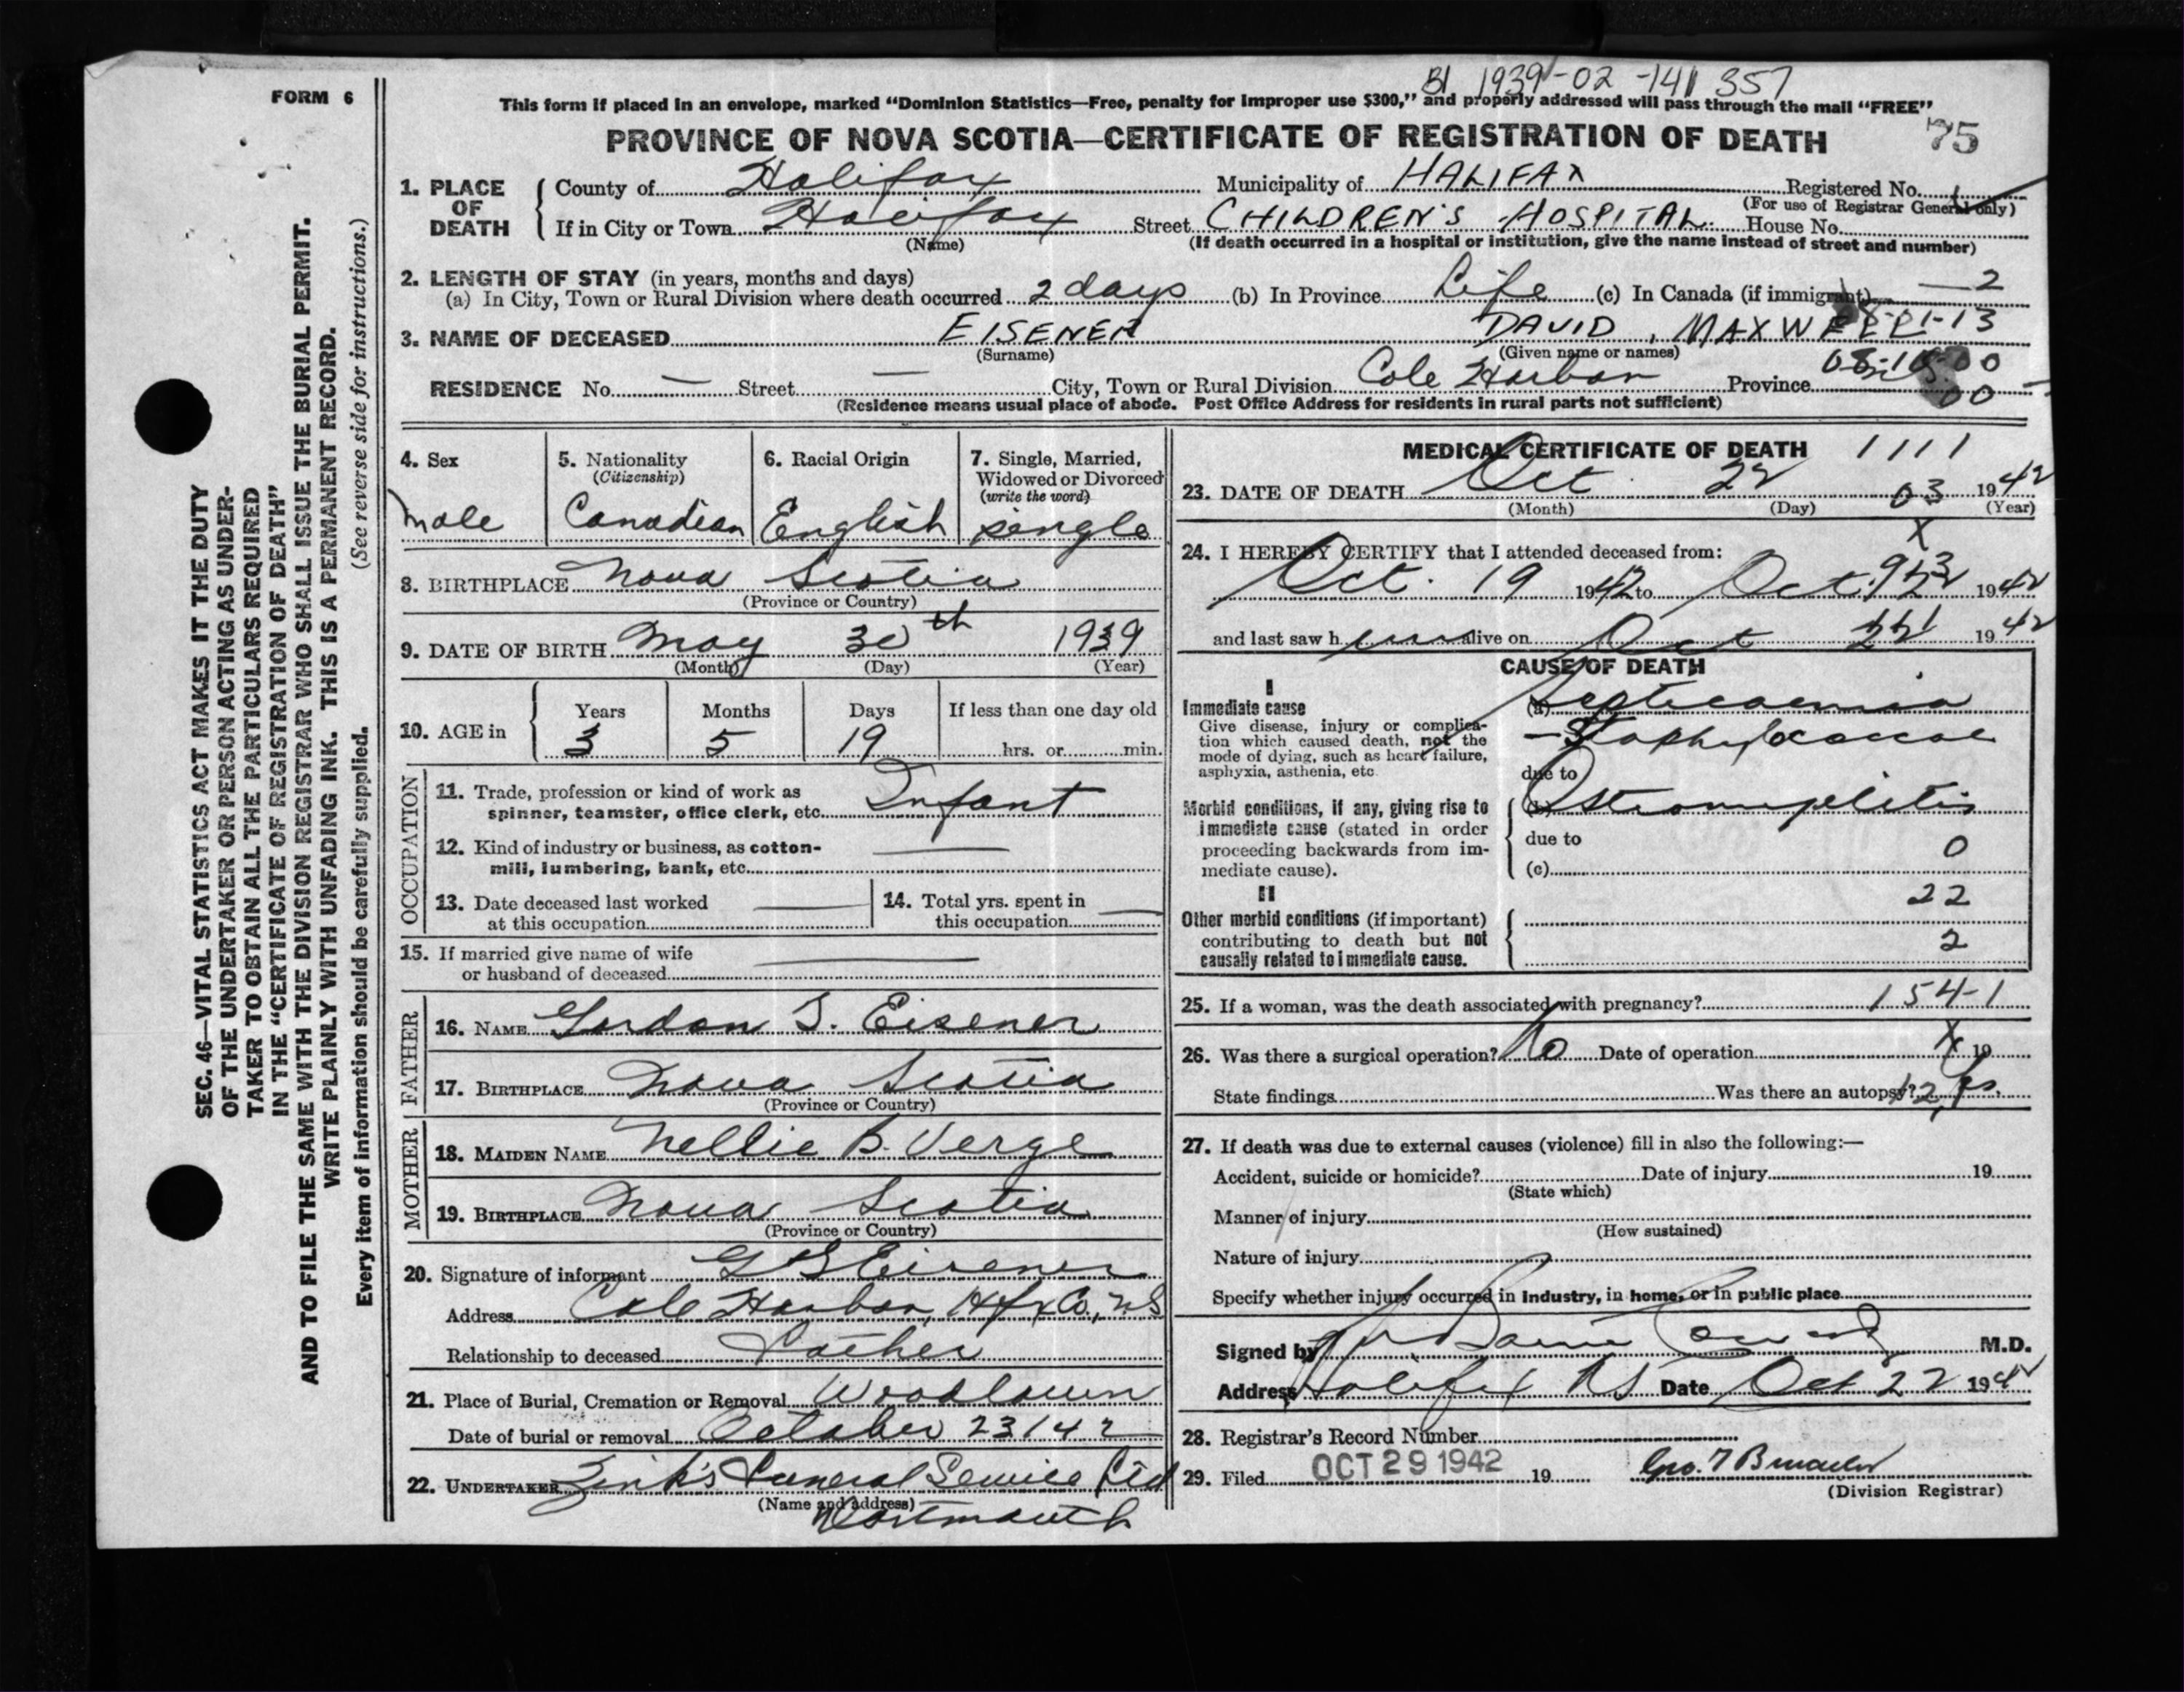 BI 1939-02-141357
FORM 6
This form if placed in an envelope, marked “Dominion Statistics—Free, penalty for improper use $300,” and properly addressed will pass through the mail “FREE”
PROVINCE OF NOVA SCOTIA—CERTIFICATE OF REGISTRATION OF DEATH 75
1. PLACE OF DEATH
County of Halifax Municipality of HALIFAX Registered No.
(For use of Registrar General only)
If in City or Town Halifax Street CHILDREN'S HOSPITAL House No.
(Name) (If death occurred in a hospital or institution, give the name instead of street and number)
2. LENGTH OF STAY (in years, months and days)
(a) In City, Town or Rural Division where death occurred 2 days (b) In Province Life (c) In Canada (if immigrant) — 2
3. NAME OF DECEASED EISENER DAVID, MAXWELL
(Surname) (Given name or names)
RESIDENCE No. — Street — City, Town or Rural Division Cole Harbor Province
(Residence means usual place of abode. Post Office Address for residents in rural parts not sufficient)
4. Sex
male
5. Nationality
(Citizenship)
Canadian
6. Racial Origin
English
7. Single, Married,
Widowed or Divorced
(write the word)
single
8. BIRTHPLACE Nova Scotia
(Province or Country)
9. DATE OF BIRTH May 30th 1939
(Month) (Day) (Year)
10. AGE in
Years Months Days If less than one day old
3 5 19 hrs. or min.
OCCUPATION
11. Trade, profession or kind of work as
spinner, teamster, office clerk, etc. Infant
12. Kind of industry or business, as cotton-
mill, lumbering, bank, etc. —
13. Date deceased last worked
at this occupation —
14. Total yrs. spent in
this occupation —
15. If married give name of wife
or husband of deceased —
FATHER
16. NAME Gordon S. Eisener
17. BIRTHPLACE Nova Scotia
(Province or Country)
MOTHER
18. MAIDEN NAME Nellie B. Verge
19. BIRTHPLACE Nova Scotia
(Province or Country)
20. Signature of informant G S Eisener
Address Cole Harbor, Hfx Co., N S
Relationship to deceased Father
21. Place of Burial, Cremation or Removal Woodlawn
Date of burial or removal October 23/42
22. UNDERTAKER Zink's Funeral Service Ltd
(Name and address)
Dartmouth
MEDICAL CERTIFICATE OF DEATH 1111
23. DATE OF DEATH Oct 22 03 1942
(Month) (Day) (Year)
24. I HEREBY CERTIFY that I attended deceased from:
Oct. 19 1942 to Oct. 1942
and last saw h alive on Oct 1942
CAUSE OF DEATH
I
Immediate cause
Give disease, injury or complica-
tion which caused death, not the
mode of dying, such as heart failure,
asphyxia, asthenia, etc.
(a) Septicaemia
— Staphylococcal
due to
Morbid conditions, if any, giving rise to
immediate cause (stated in order
proceeding backwards from im-
mediate cause).
(b) Osteomyelitis
due to 0
(c)
22
II
Other morbid conditions (if important)
contributing to death but not
causally related to immediate cause.
2
25. If a woman, was the death associated with pregnancy? 154-1
26. Was there a surgical operation? No Date of operation X 19
State findings Was there an autopsy?
27. If death was due to external causes (violence) fill in also the following:—
Accident, suicide or homicide? Date of injury 19
(State which)
Manner of injury
(How sustained)
Nature of injury
Specify whether injury occurred in industry, in home, or in public place
Signed by M.D.
Address Halifax N S Date Oct 22 1942
28. Registrar's Record Number
29. Filed OCT 29 1942 19
(Division Registrar)
SEC. 46—VITAL STATISTICS ACT MAKES IT THE DUTY
OF THE UNDERTAKER OR PERSON ACTING AS UNDER-
TAKER TO OBTAIN ALL THE PARTICULARS REQUIRED
IN THE “CERTIFICATE OF REGISTRATION OF DEATH”
AND TO FILE THE SAME WITH THE DIVISION REGISTRAR WHO SHALL ISSUE THE BURIAL PERMIT.
WRITE PLAINLY WITH UNFADING INK. THIS IS A PERMANENT RECORD.
Every item of information should be carefully supplied. (See reverse side for instructions.)